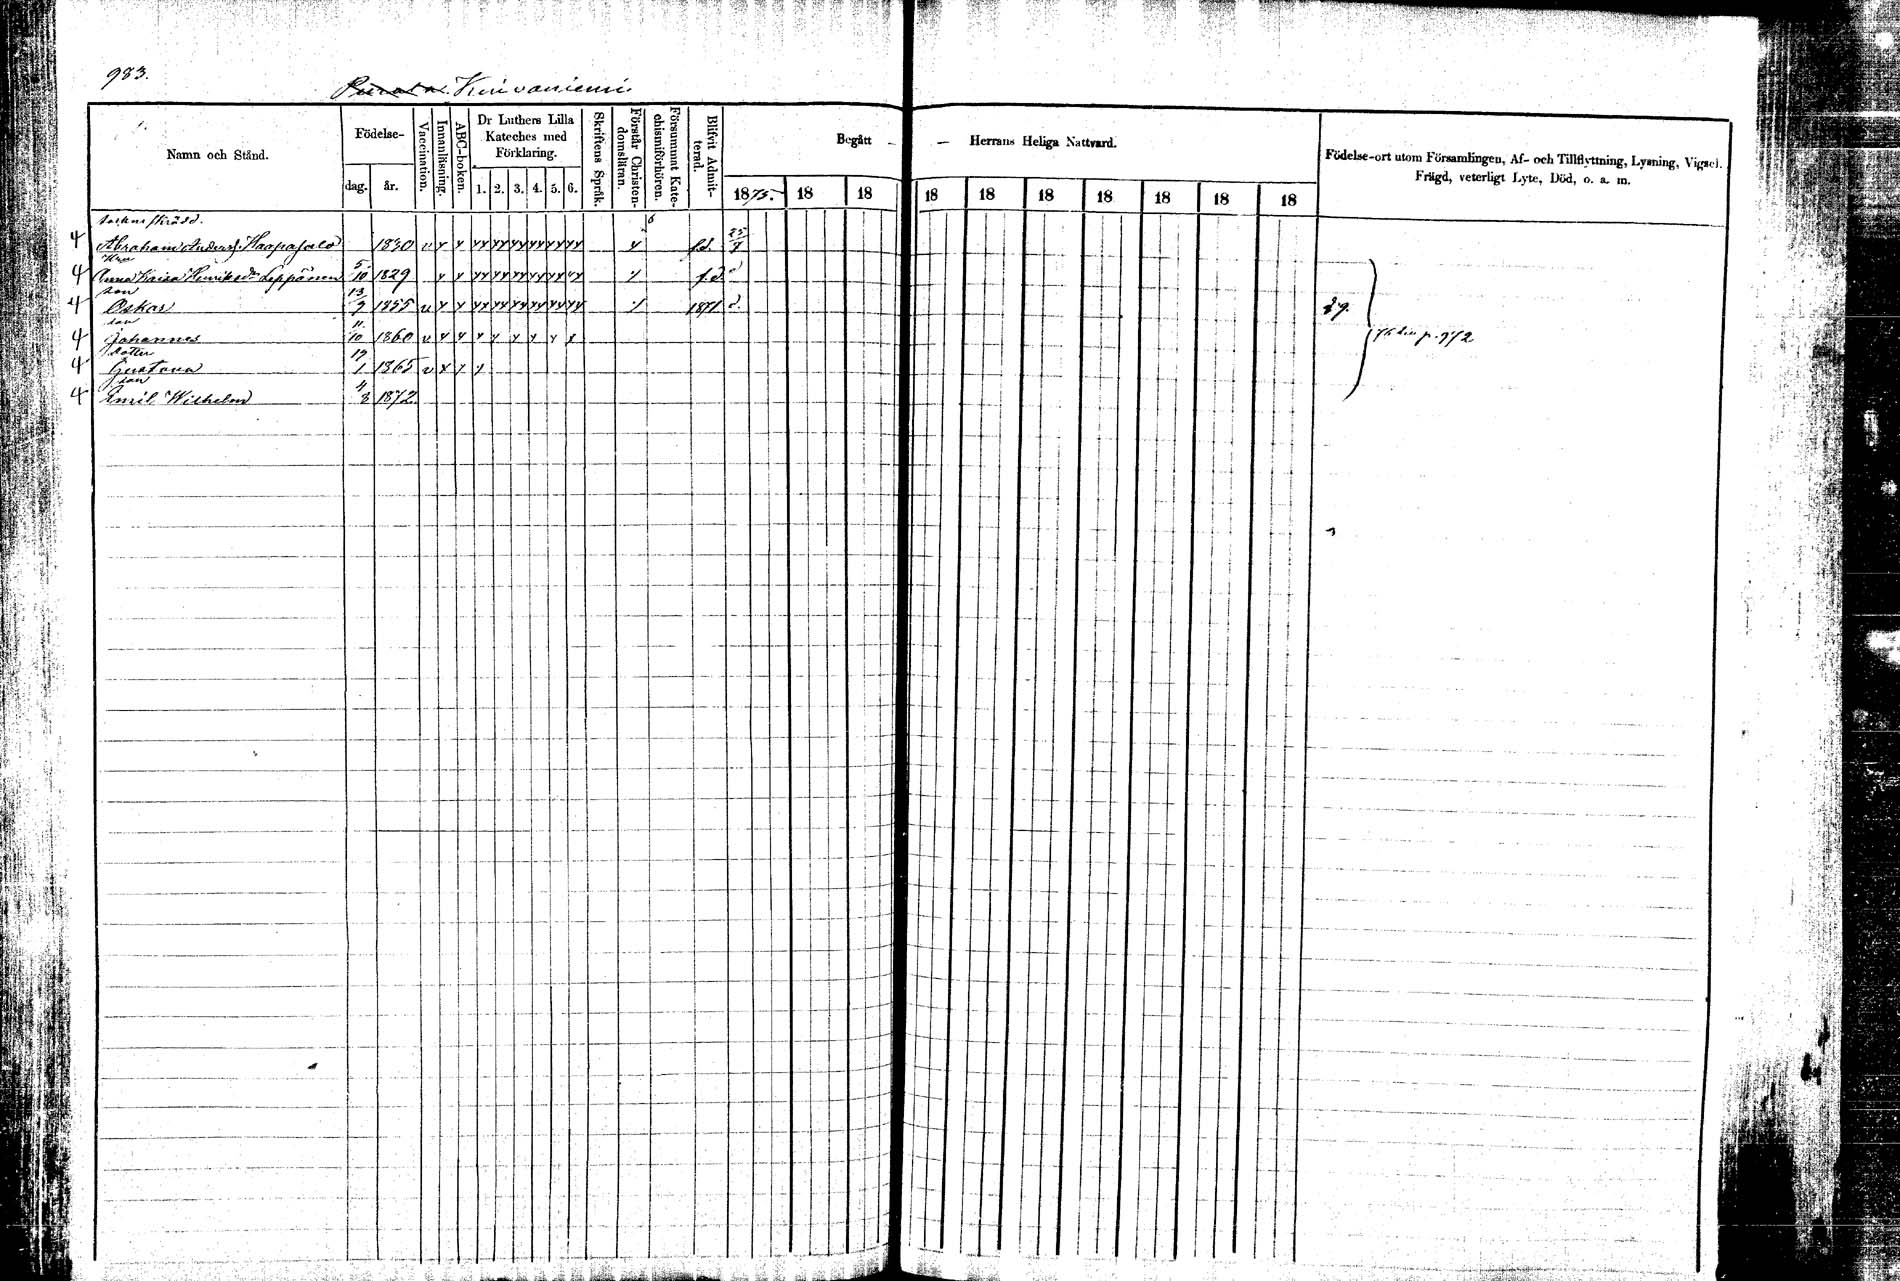 983.
Kuivaniemi
Namn och Stånd.
Födelse-
dag.
år.
Vaccination.
Innanläsning.
ABC-boken.
Dr Luthers Lilla Kateches med Förklaring.
1. 2. 3. 4. 5. 6.
Skriftens Språk.
Förstår Christendomsläran.
Försummat Katechismiförhören.
Blifvit Admitterad.
Begått — — Herrans Heliga Nattvard.
1875. 18 18 18 18 18 18 18 18 18
Födelse-ort utom Församlingen, Af- och Tillflyttning, Lysning, Vigsel.
Frägd, veterligt Lyte, Död, o. a. m.
4 Abraham Anderss. Haapasalo 1830 v f.d. 25/7
4 Anna Kaisa Henriksdr Leppänen 5/10 1829 f.d.
son
4 Oskar 13/9 1855 v 1871 d. 29.
son
4 Johannes 11/10 1860 v p. 972
dotter
4 Gustava 19/1 1865 v
son
4 Emil Wilhelm 4/8 1872